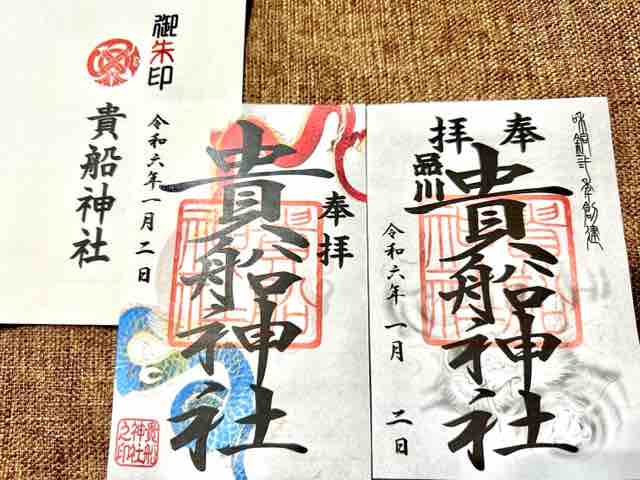 御朱印
貴船神社
令和六年一月二日
奉拝
貴船神社
貴船神社之印
奉拝
品川
貴船神社
令和六年 一月 二日